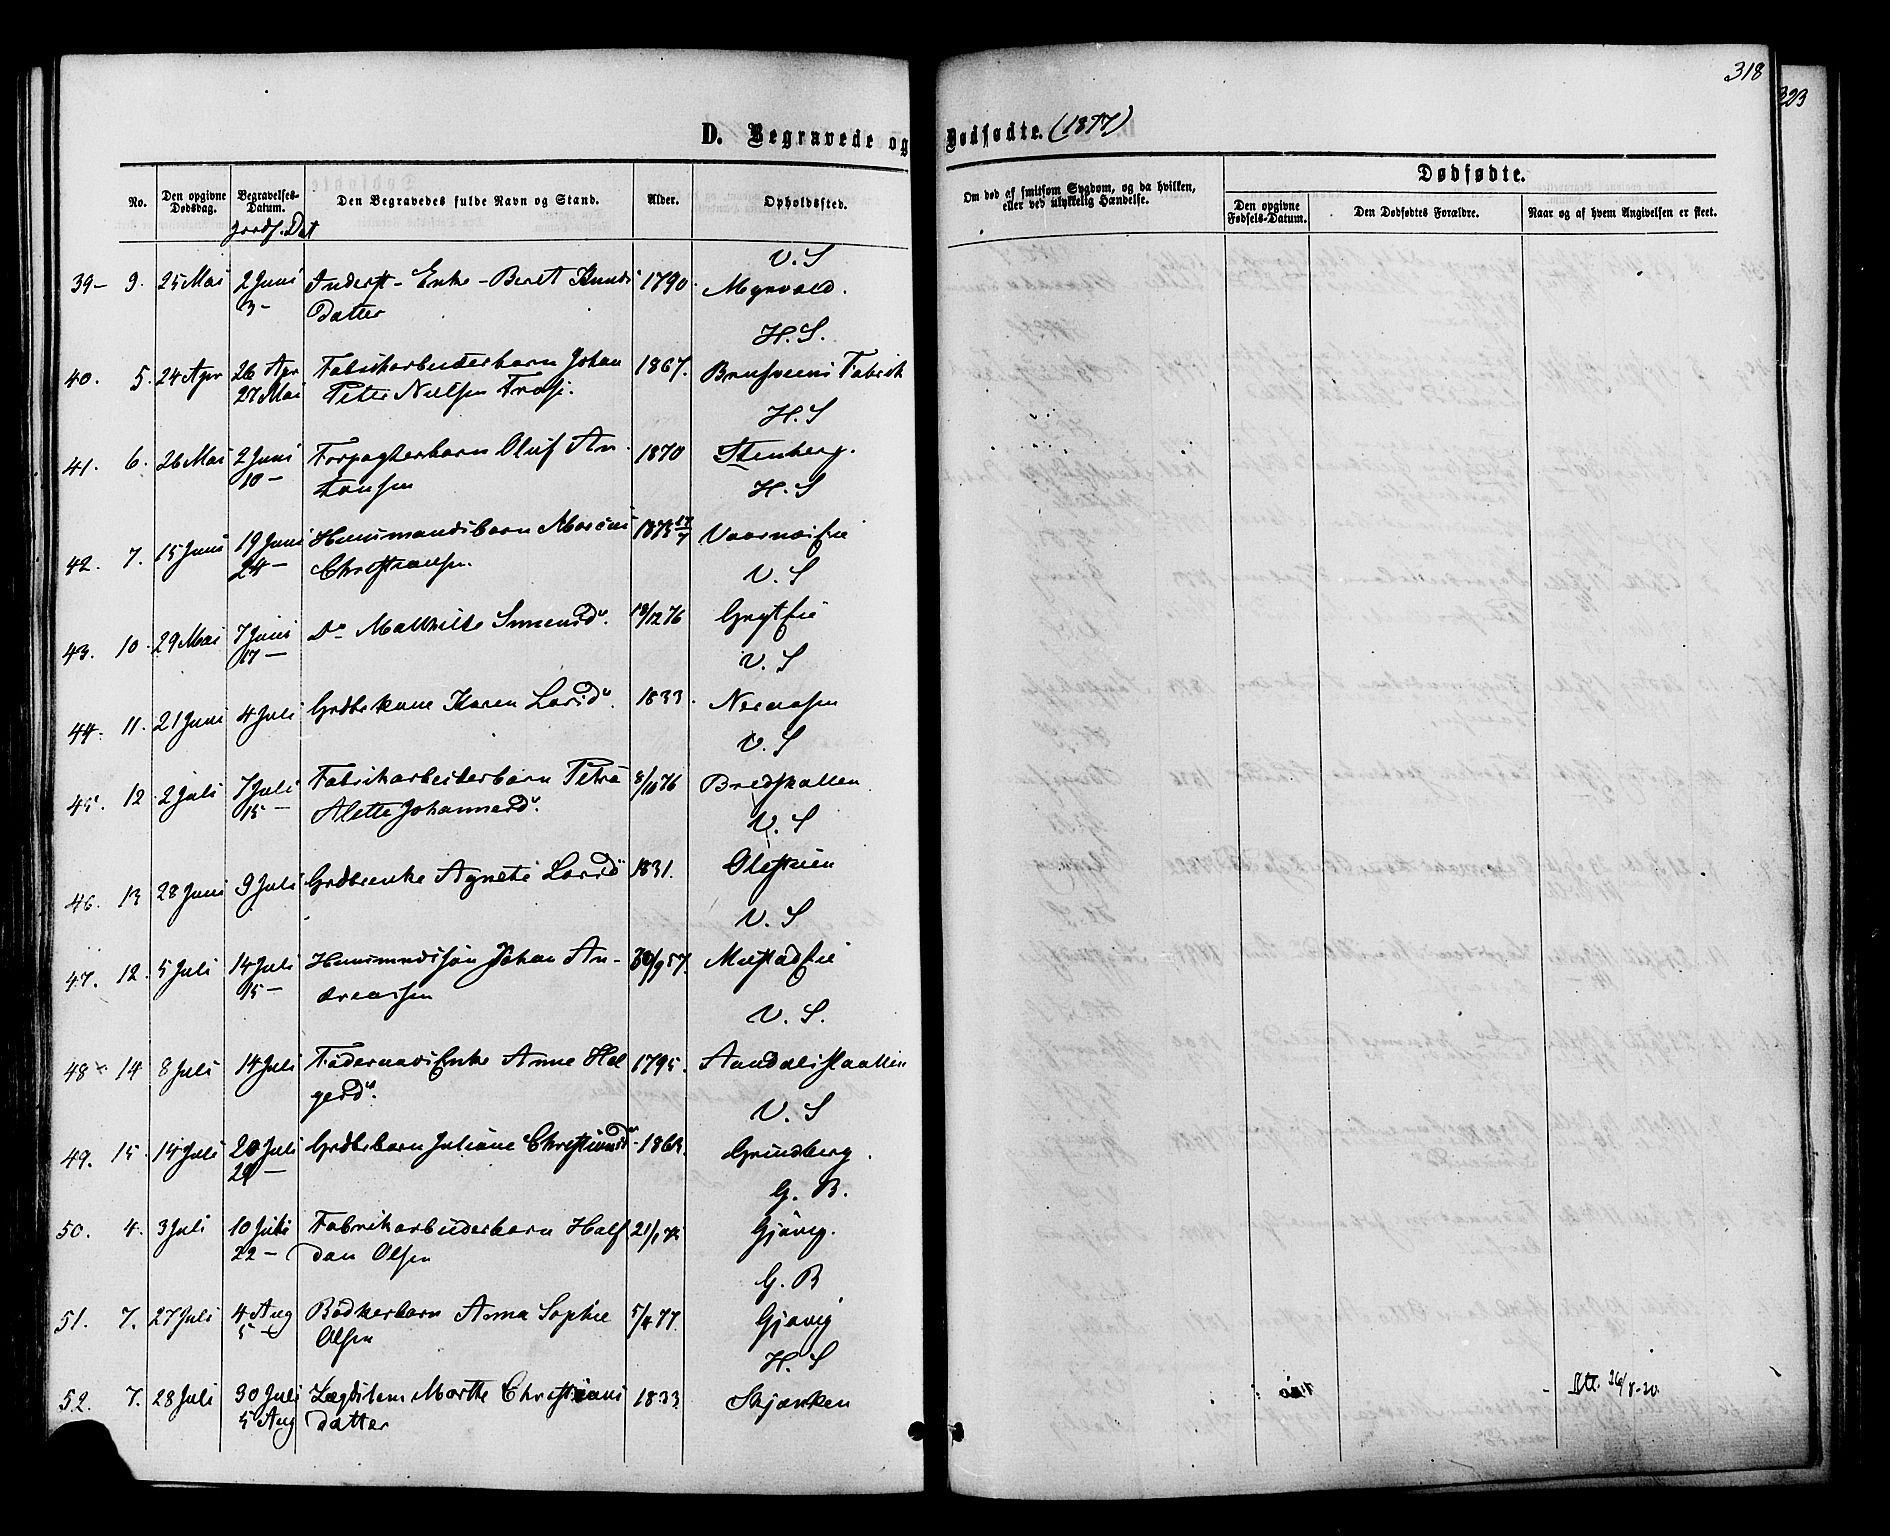 318
323
D. Begravede og Dødfødte. (1877)
No. Den opgivne Dødsdag. Begravelses-Datum. Den Begravedes fulde Navn og Stand. Alder. Opholdssted. Om død af smitsom Sygdom, og da hvilken, eller ved ulykkelig Hændelse. Dødfødte.
Den opgivne Fødsels-Datum. Den Dødfødtes Forældre. Naar og af hvem Angivelsen er skeet.
Jordf. Dat
V. S
39- 9. 25 Mai 2 Juni Inderst- Enke - Beret Knuds 1790. Myrvold.
3- Datter
H. S.
40. 5. 24 Apr 26 Apr Fabrikarbeiderbarn Johan 1867. Brusveens Fabrik
27 Mai Peter Nielsen
H. S
41. 6. 26 Mai 2 Juni Forpagterbarn Oluf An- 1870 Stenberg.
10- tonsen
H. S
42. 7. 15 Juni 19 Juni Huusmandsbarn 1875
24- Christiansen.
V. S
43. 10. 29 Mai 7 Juni Do Mathilde 18/12 76
17-
V. S
44. 11. 21 Juni 4 Juli Grdbrkone Karen Larsd. 1833.
V. S
45. 12 2 Juli 7 Juli Fabrikarbeiderbarn Petra 8/10 76 Bredskallen
15- Alette Johannesd.
V. S
46. 13 28 Juni 9 Juli Grdbrenke Agnete Larsd 1831.
V. S
47. 12. 5 Juli 14 Juli Huusmndssøn Johan An- 57. Mustadeie
15- dreassen
V. S.
48 14 8 Juli 14 Juli Føderaads Enke Anne Hol- 1795.
gersd.
V. S
49. 15. 14 Juli 20 Juli Grdbrbarn Juliane Christiansd. Grindberg.
G. B.
50. 4. 3 Juli 10 Juli Fabrikarbeiderbarn Half- 21/1 Gjøvig.
22- dan Olsen
G. B
51. 7. 27 Juli 4 Aug Bødkerbarn Anna Sophie 5/4 77. Gjøvig
5- Olsen
H. S
52. 7. 28 Juli 30 Juli Lægdslem Marthe Christians 1833 Skjønken
5 Aug datter
26/8-20.